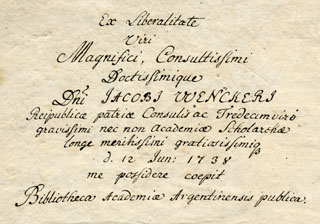 Ex Liberalitate
Viri
Magnifici, Consultissimi
Doctissimique
Dñi JACOBI WENCKERI
Reipublicæ patriæ Consulis ac Tredecimviri
gravissimi nec non Academiæ Scholarchæ
longe meritissimi gratiosissimiq
d. 12 Jun: 1738
me possidere coepit
Bibliotheca Academiæ Argentinensis publica.